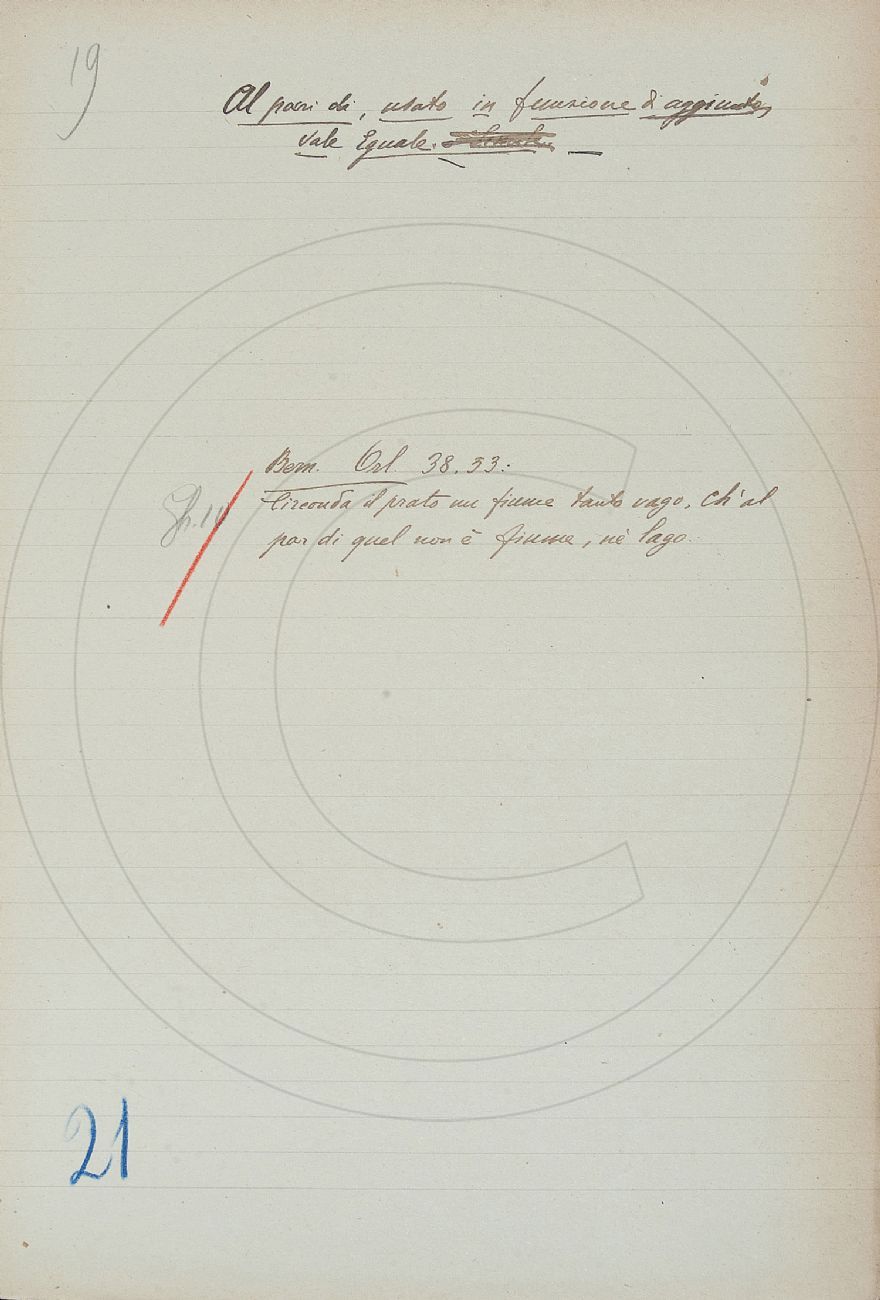 19
Al pari di, usato in funzione di aggiunto,
vale Eguale. —
Bern. Orl. 38. 53:
Circonda il prato un fiume tanto vago, Ch'al
par di quel non è fiume, nè lago.
21